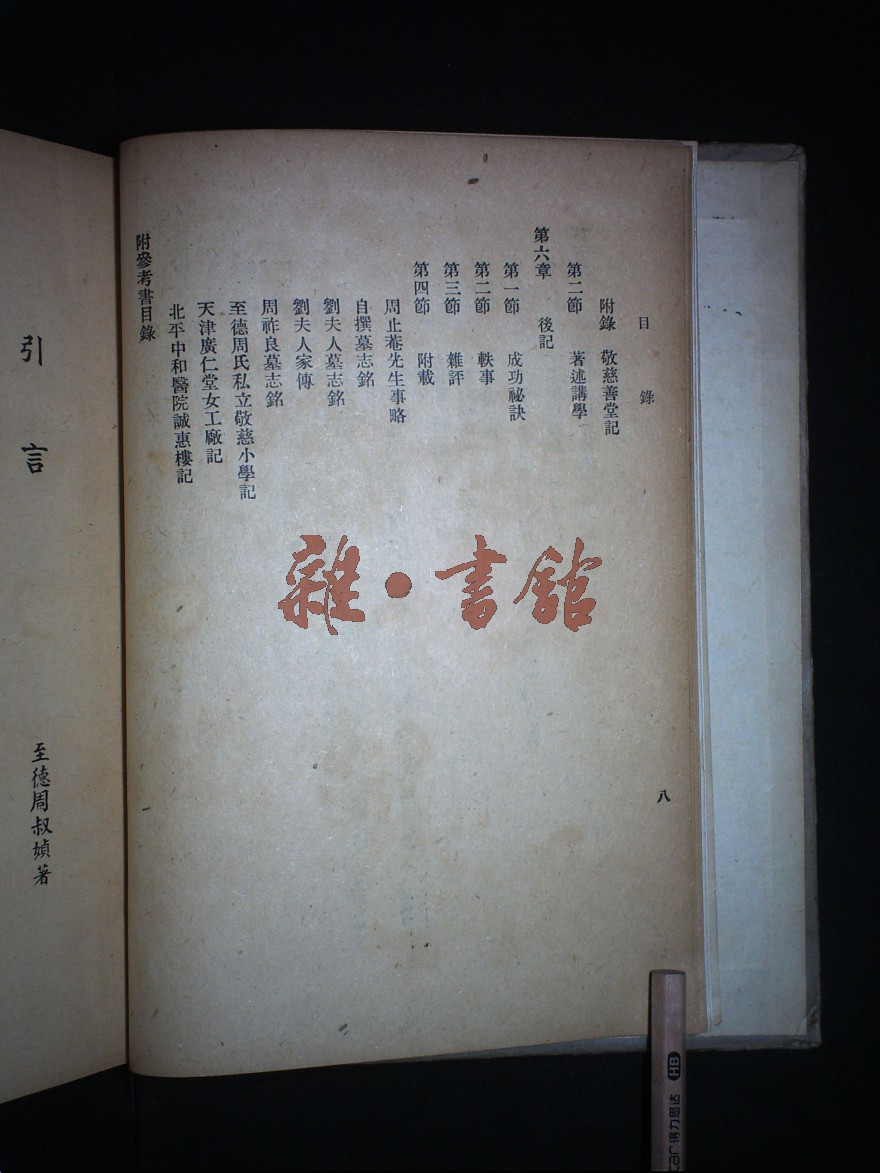 目錄
附錄 敬慈善堂記
第二節 著述講學
第六章 後記
第一節 成功祕訣
第二節 軼事
第三節 雜評
第四節 附載
周止菴先生事略
自撰墓志銘
劉夫人墓志銘
劉夫人家傳
周祚良墓志銘
至德周氏私立敬慈小學記
天津廣仁堂女工廠記
北平中和醫院誠惠樓記
附參考書目錄
八
引言
至德周叔媜著
雜·書館
得力思达 HB